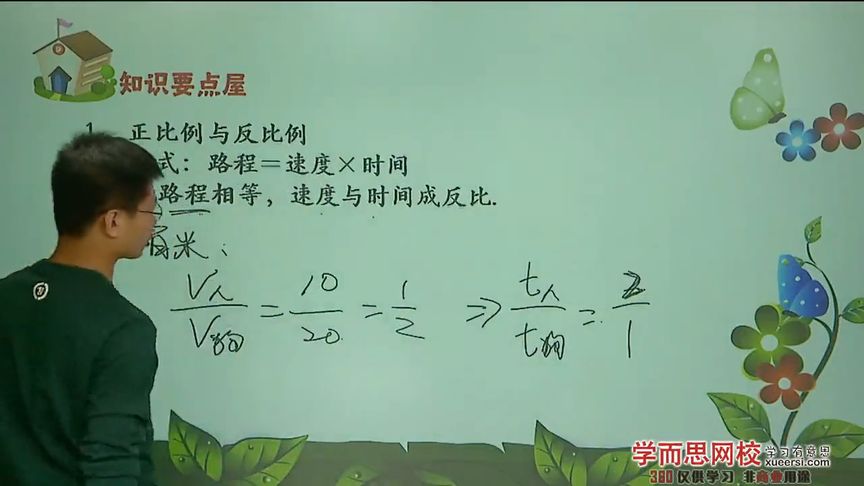 知识要点屋
1 正比例与反比例
式：路程＝速度×时间
路程相等，速度与时间成反比.
米：
V人/V狗 = 10/20 = 1/2 ⇒ t人/t狗 = 2/1
学而思网校 学习有意思
xueersi.com
360仅供学习 非商业用途